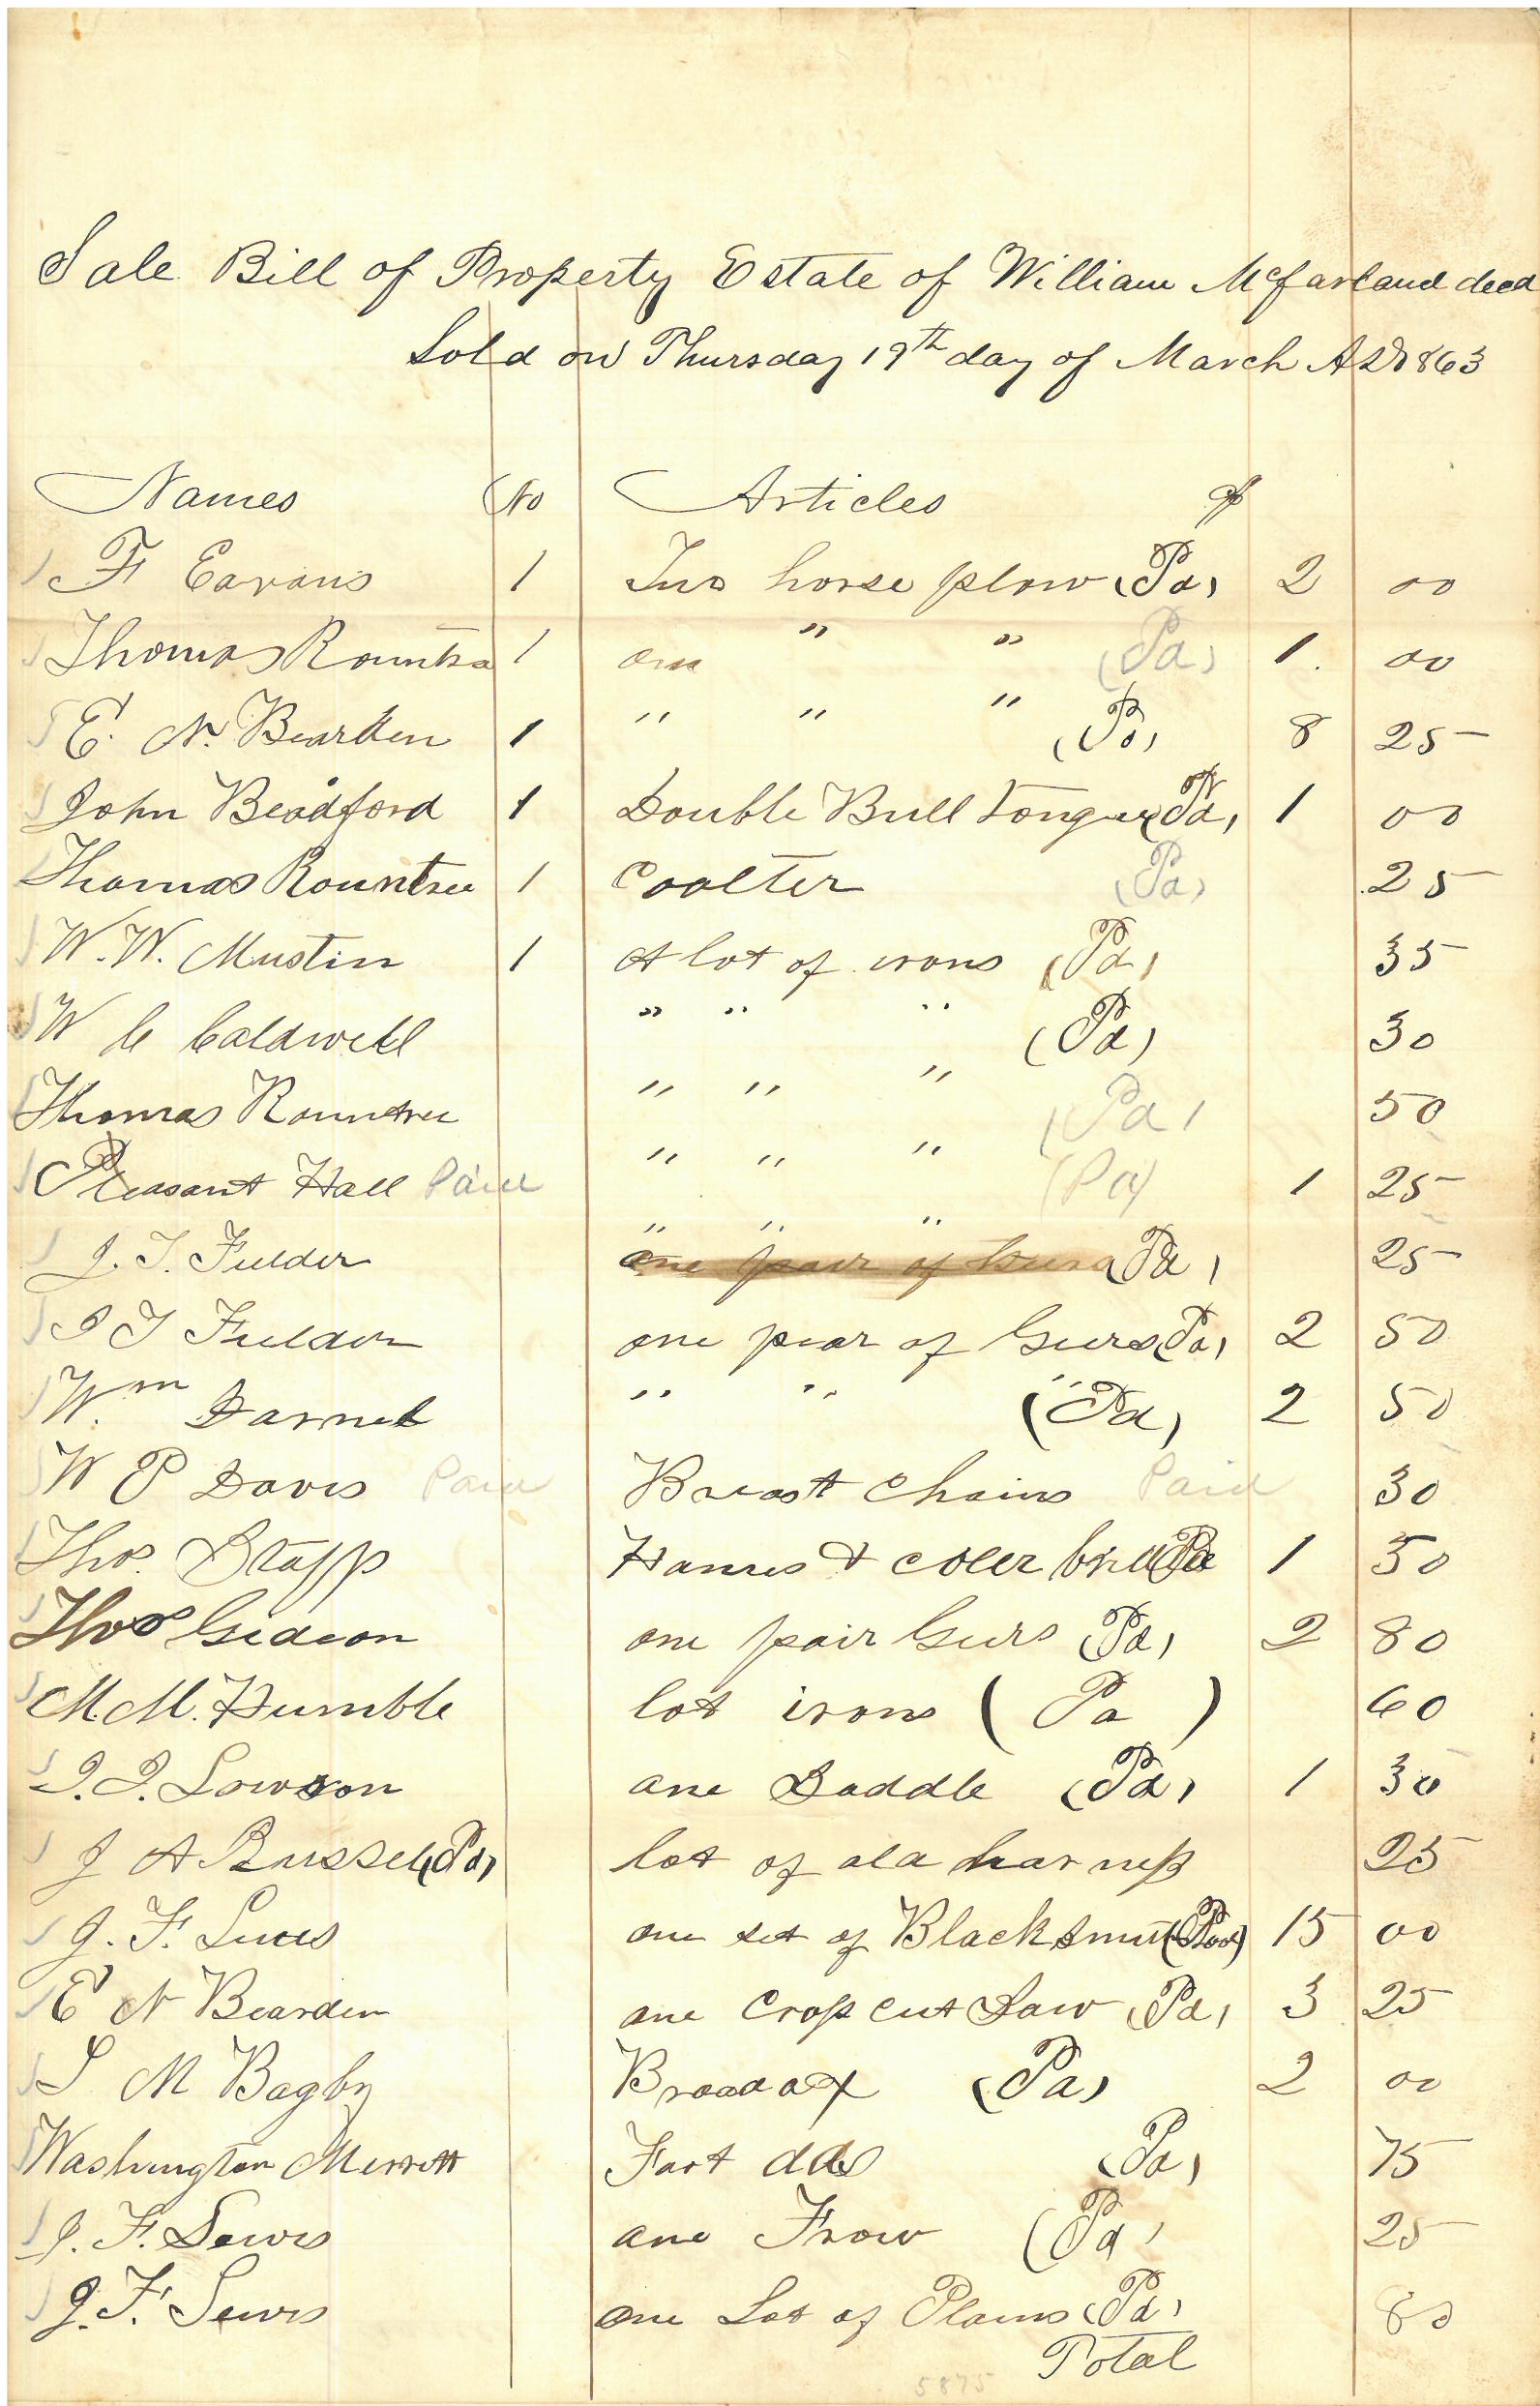 Sale Bill of Property Estate of William McFarland decd
Sold on Thursday 19th day of March AD 1863
Names No Articles
F Eavans 1 Two horse plow (Pd) 2 00
Thomas Rountre 1 one " " (Pd) 1. 00
E. N. Bearden 1 " " " (Pd) 8 25
John Beadford 1 Double Bull Tongue (Pd) 1 00
Thomas Rountree 1 Coolter (Pd) 25
W. W. Mustin 1 A lot of irons (Pd) 35
W C Caldwell " " " (Pd) 30
Thomas Rountree " " " (Pd) 50
Pleasant Hall Paid " " " (Pd) 1 25
J. T. Fulder " " " (Pd) 25
J T Fulder one pear of Geers (Pd) 2 50
Wm Darnel " " " (Pd) 2 50
W P Davis Paid Breast Chains Paid 30
Thos. Stapp Hames & Coler (Pd) 1 50
Thos Gideon one pair Geers (Pd) 2 80
M. M. Humble lot irons (Pd) 60
J. J. Lowson one Saddle (Pd) 1 30
J A Russel (Pd) lot of old harness 25
J. F. Lewis one set of Blacksmit (Pd) 15 00
E N Bearden one Cross cut Saw (Pd) 3 25
S M Bagby Broad ax (Pd) 2 00
Washington Merrott Fort (Pd) 75
J. F. Lewis one Frow (Pd) 25
J. F. Lewis one Lot of Plains (Pd) 80
Total
5875